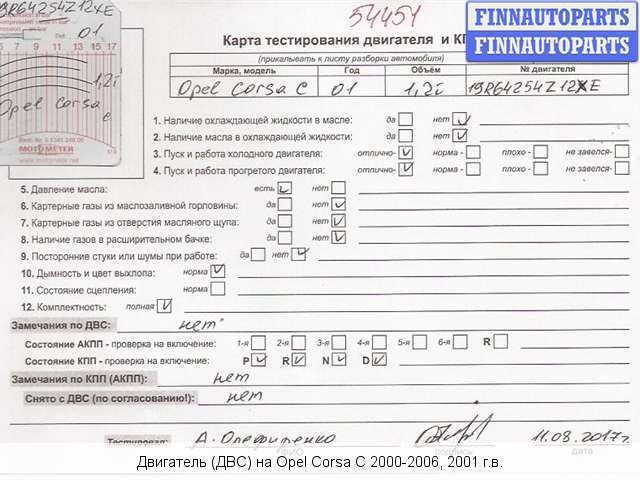 54451
FINNAUTOPARTS
FINNAUTOPARTS
19R64254Z12XE
01
5 7 9 11 13 15 17
1,2i
Opel Corsa
c
MOTOMETER
Карта тестирования двигателя и КП
(прикалывать к листу разборки автомобиля)
Марка, модель Год Объём № двигателя
Opel Corsa C 01 1,2i 19R64254Z12XE
1. Наличие охлаждающей жидкости в масле: да нет
2. Наличие масла в охлаждающей жидкости: да нет
3. Пуск и работа холодного двигателя: отлично- норма- плохо- не завелся-
4. Пуск и работа прогретого двигателя: отлично- норма- плохо- не завелся-
5. Давление масла: есть нет
6. Картерные газы из маслозаливной горловины: да нет
7. Картерные газы из отверстия масляного щупа: да нет
8. Наличие газов в расширительном бачке: да нет
9. Посторонние стуки или шумы при работе: да нет
10. Дымность и цвет выхлопа: норма
11. Состояние сцепления: норма
12. Комплектность: полная
Замечания по ДВС: нет
Состояние АКПП - проверка на включение: 1-я 2-я 3-я 4-я 5-я 6-я R
Состояние КПП - проверка на включение: P R N D
Замечания по КПП (АКПП): нет
Снято с ДВС (по согласованию!): нет
Тестировал: А. Олефиренко 11.08.2017г.
ФИО подпись дата
Двигатель (ДВС) на Opel Corsa C 2000-2006, 2001 г.в.